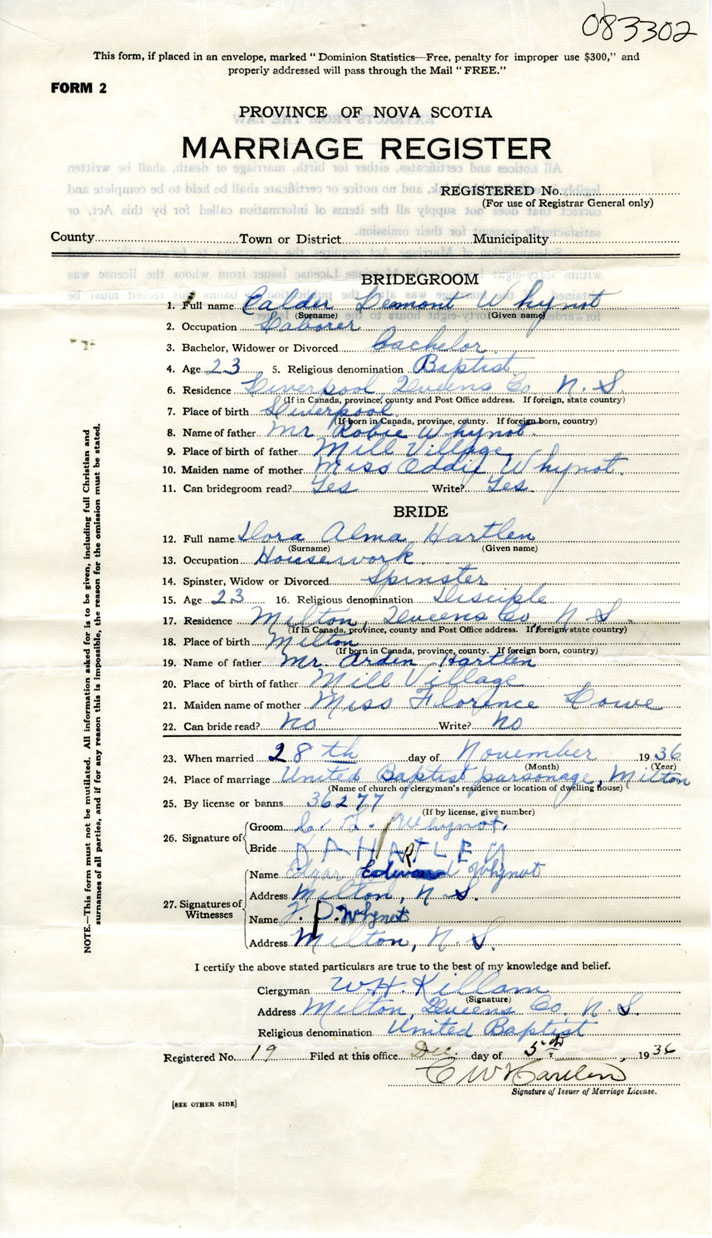 083302
This form, if placed in an envelope, marked "Dominion Statistics—Free, penalty for improper use $300," and
properly addressed will pass through the Mail "FREE."
FORM 2
PROVINCE OF NOVA SCOTIA
MARRIAGE REGISTER
REGISTERED No.
(For use of Registrar General only)
County Town or District Municipality
BRIDEGROOM
1. Full name Calder Lemont Whynot
(Surname) (Given name)
2. Occupation Laborer
3. Bachelor, Widower or Divorced Bachelor
4. Age 23 5. Religious denomination Baptist
6. Residence Liverpool, Queens Co. N. S.
(If in Canada, province, county and Post Office address. If foreign, state country)
7. Place of birth Liverpool
(If born in Canada, province, county. If foreign born, country)
8. Name of father Mr Robie Whynot
9. Place of birth of father Mill Village
10. Maiden name of mother Miss Eddie Whynot
11. Can bridegroom read? Yes Write? Yes.
BRIDE
12. Full name Dora Alma Hartlen
(Surname) (Given name)
13. Occupation Housework
14. Spinster, Widow or Divorced Spinster
15. Age 23 16. Religious denomination Disciple
17. Residence Milton, Queens Co N S
(If in Canada, province, county and Post Office address. If foreign, state country)
18. Place of birth Milton
(If born in Canada, province, county. If foreign born, country)
19. Name of father Mr. Ardin Hartlen
20. Place of birth of father Mill Village
21. Maiden name of mother Miss Florence Lowe
22. Can bride read? No Write? No
23. When married 28th day of November 1936
(Month) (Year)
24. Place of marriage United Baptist parsonage, Milton
(Name of church or clergyman's residence or location of dwelling house)
25. By license or banns 36277
(If by license, give number)
26. Signature of Groom C. L. Whynot.
Bride
27. Signatures of Witnesses Name Edward Whynot
Address Milton, N. S.
Name J. D. Whynot
Address Milton, N. S.
I certify the above stated particulars are true to the best of my knowledge and belief.
Clergyman W. H. Killam
(Signature)
Address Milton, Queens Co. N. S.
Religious denomination United Baptist
Registered No. 19 Filed at this office Dec. day of 5th, 1936
C W Hartlen
Signature of Issuer of Marriage License.
[SEE OTHER SIDE]
NOTE.—This form must not be mutilated. All information asked for is to be given, including full Christian and
surnames of all parties, and if for any reason this is impossible, the reason for the omission must be stated.